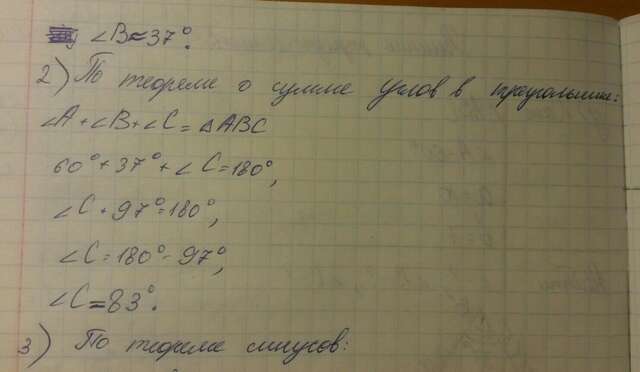 ∠B≈37°.
2) По теореме о сумме углов в треугольнике:
∠A+∠B+∠C=△ABC
60°+37°+∠C=180°,
∠C+97°=180°,
∠C=180°-97°,
∠C=83°.
3) По теореме синусов: